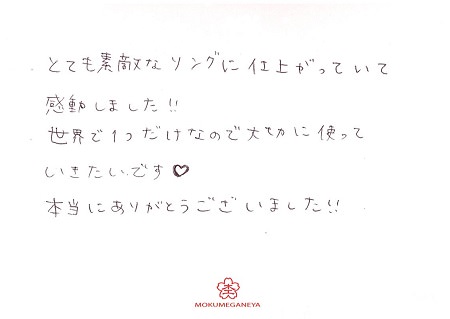 とても素敵なリングに仕上がっていて
感動しました!!
世界で1つだけなので大切に使って
いきたいです♡
本当にありがとうございました!!
MOKUMEGANEYA